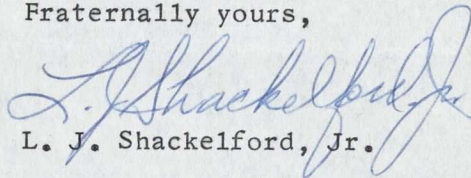 Fraternally yours,
L. J. Shackelford, Jr.
L. J. Shackelford, Jr.